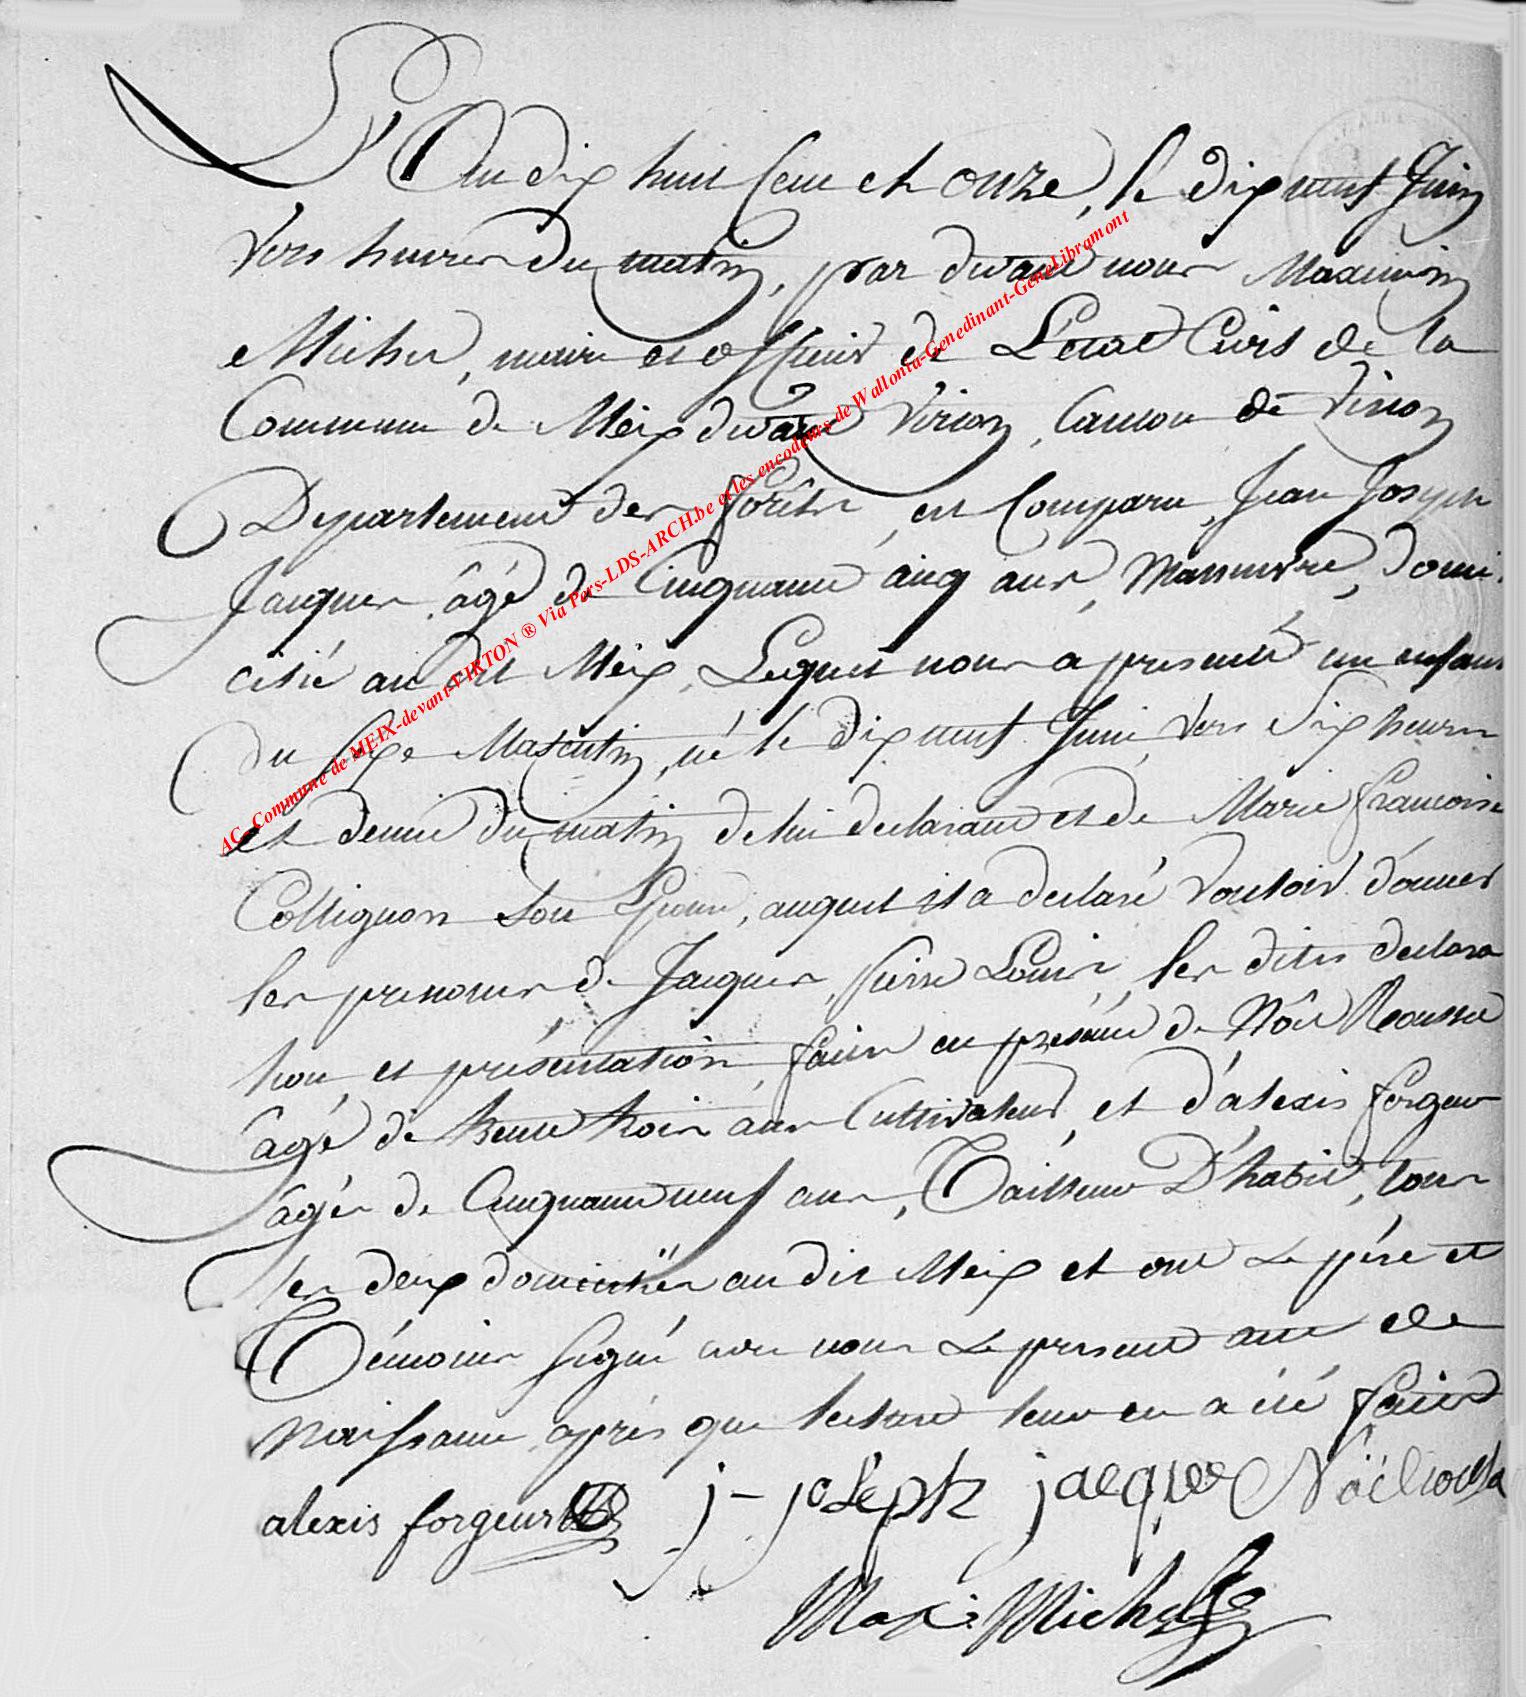 L'An dix huit Cent et onze, le dix neuf Juin
vers heures du matin, par devant nous Maximin
Michel, maire et officier de L'état Civil de la
Commune de Meix devant Virton, Canton de Virton
Département des forêts, est Comparu, Jean Joseph
Jacques, âgé de Cinquante cinq ans, Manœuvre, domi-
cilié au dit Meix, Lequel nous a présenté un enfant
du Sexe Masculin, né le dix neuf Juin, vers Six heures
et demie du matin de lui déclarant et de Marie françoise
Collignon Son Epouse, auquel il a déclaré Vouloir donner
les prenoms de Jacques, pierre Louis, les dites déclara
tion et présentation faites en présence de Nôel
âgé de trente trois ans Cultivateur, et d'alexis forgeur
âgé de Cinquante neuf ans, Tailleur D'habit, tous
les deux domiciliés au dit Meix et ont Le père et
Témoins Signé avec nous Le présent acte de
Naissance après que lecture leur en a été faite
alexis forgeur j-joseph jacques Noël
Max: Michel
AC- Commune de MEIX-devant-VIRTON ® Via Pers-LDS-ARCH.be et les encodeurs de Wallonia-Genedinant-GeneLibramont